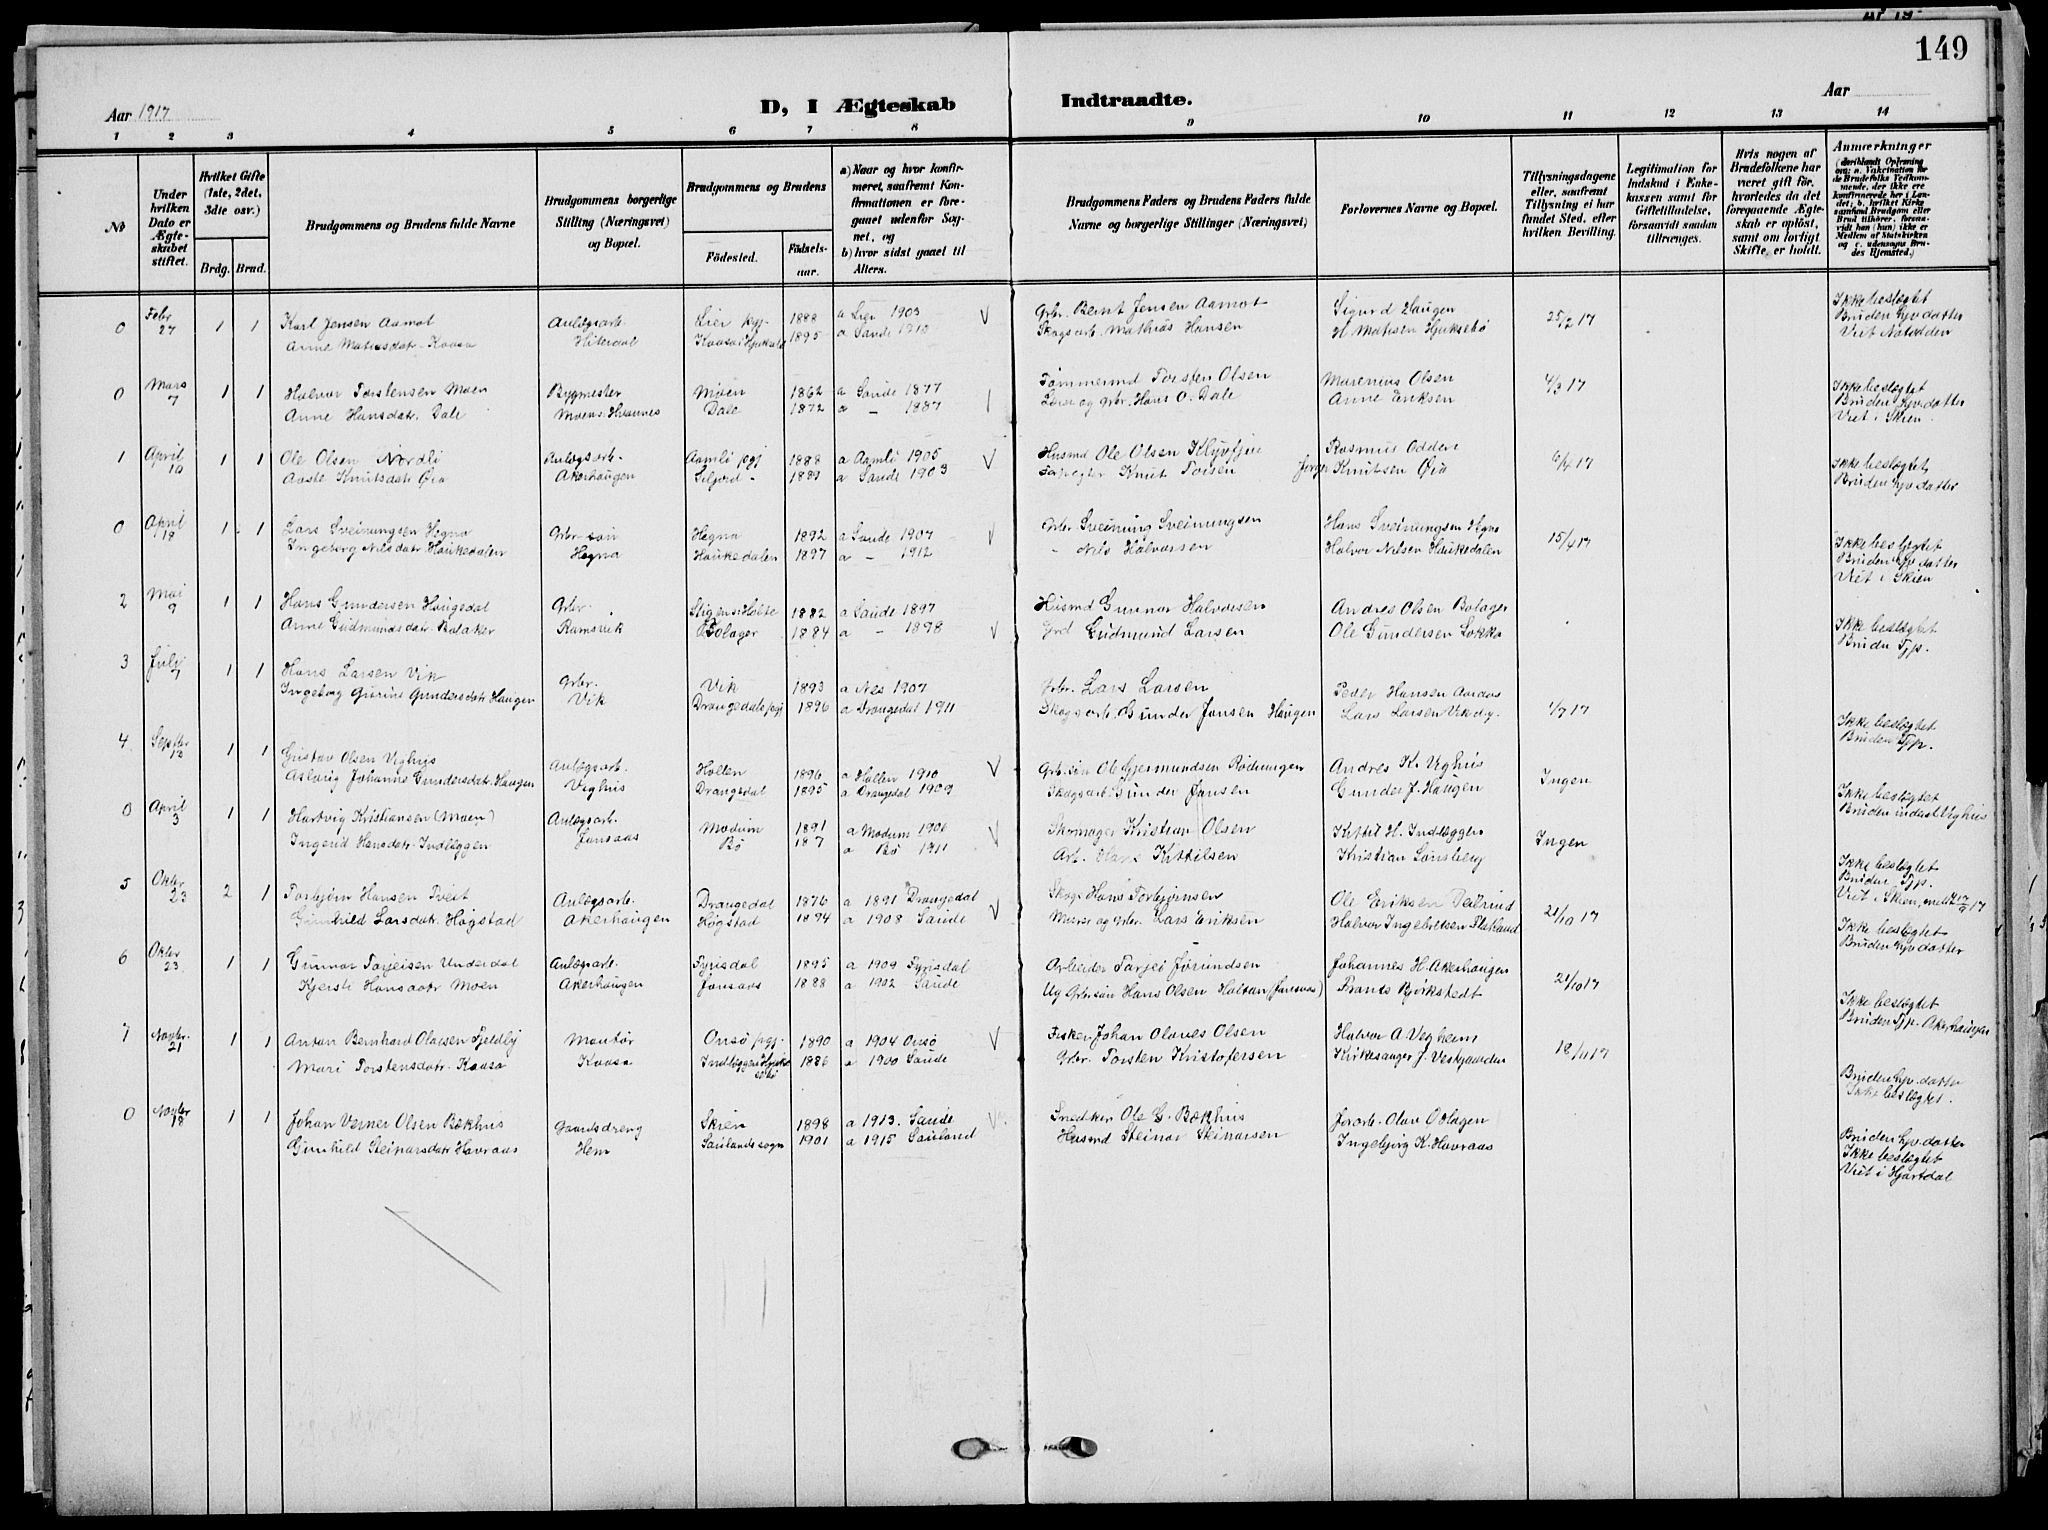 149
Aar 1917
D, I Ægteskab Indtraadte.
Aar
1 2 3 4 5 6 7 8 9 10 11 12 13 14
No
Under hvilken Dato er Ægteskabet stiftet.
Hvilket Gifte (1ste, 2det, 3die osv.)
Brdg. Brud.
Brudgommens og Brudens fulde Navne
Brudgommens borgerlige Stilling (Næringsvei) og Bopæl.
Brudgommens og Brudens
Födested. Födselsaar.
a) Naar og hvor konfirmeret, saafremt Konfirmationen er foregaaet udenfor Sognet, og
b) hvor sidst gaaet til Alters.
Brudgommens Faders og Brudens Faders fulde Navne og borgerlige Stillinger (Næringsvei)
Forlovernes Navne og Bopæl.
Tillysningsdagene eller, saafremt Tillysning ei har fundet Sted, efter hvilken Bevilling.
Legitimation for Indskud i Enkekassen samt for Giftetilladelse, forsaavidt saadan tiltrænges.
Hvis nogen af Brudefolkene har været gift för, hvorledes da det foregaaende Ægteskab er oplöst, samt om lovligt Skifte er holdt.
Anmærkninger
0 Febr 27 1 1 Karl Jensen Aamot Anlægsarb. Lier pgj. 1888 a Lier 1903 Grbr. Bernt Jensen Aamot Sigurd Haugen 25/2 17 Ikke beslægtet
Anne Matisdatr. Kaasa Hiterdal 1895 a Saude 1910 Skogsarb. Mathias Hansen H Matisen Hjuksebø Bruden hjv. datter
Viet Notodden
0 Mars 7 1 1 Halvor Torstensen Moen Bygmester Moen 1862 a Saude 1877 Tömmermd Torsten Olsen Marenius Olsen 4/3 17 Ikke beslægtet
Anne Hansdatr. Dale Dale 1872 a — 1887 Hans O. Dale Anne Eriksen Bruden hjv. datter
Viet i Skien.
1 April 10 1 1 Ole Olsen Nordli Anlægsarb. Aamli pgj 1888 a Aamli 1905 Husmd Ole Olsen Rasmus Odden 6/4 17 Ikke beslægtet
Aaste Knutsdatr Øia Akerhaugen Seljord 1889 a Saude 1903 Knut Knutsen Øia Bruden hjv datter
0 April 18 1 1 Lars Sveinungsen Hegna Grbr-søn Hegna 1892 a Saude 1907 Grbr Sveinung Sveinungsen Hans Sveinungsen Hegna 15/4 17 Ikke beslægtet
Ingeborg Nilsdatr Haukedalen Hegna Haukedalen 1897 a — 1912 Nils Halvorsen Halvor Nilsen Haukedalen Bruden hjv datter
Viet i Skien
2 Mai 9 1 1 Hans Gundersen Haugedal Grbr. 1882 a Saude 1897 Husmd Gunnar Halvorsen Andres Olsen Bolager Ikke beslægtet
Anne Gudmundsdatr. Bolaker Ramsvik Bolager 1884 a — 1898 Grd Gudmund Larsen Ole Gundersen Sokka Bruden Tjp.
3 Juli 7 1 1 Hans Larsen Vik Grbr. Vik 1893 a Nes 1907 Grbr. Lars Larsen Peder Hansen Aaraas 1/7 17 Ikke beslægtet
Ingeborg Gurine Gundersdatr Haugen Vik Drangedals pgj 1896 a Drangedal 1911 Skogsarb. Gunder Jansen Haugen Lars Larsen Vik d.y. Bruden Tjp.
4 Septbr 13 1 1 Gustav Olsen Veghus Anlægsarb. Hollen 1896 a Hollen 1910 Grbr.søn Ole Gjermundsen Andres K. Veghus Ingen Ikke beslægtet
Aslaug Johanne Gundersdatr. Haugen Veghus Drangedal 1895 a Drangedal 1909 Skogsarb Gunder Jansen Gunder J. Haugen Bruden
0 April 3 1 1 Hartvig Kristiansen (Moen) Anlægsarb. Modum 1891 a Modum 1906 Skomager Kristian Olsen Kittil H. Indlæggen Ingen Ikke beslægtet
Ingerid Hansdatr. Indlæggen Jonsaas Bø 187 a Bø 1911 Arb. Hans Kittilsen Kristian Lönsberg Bruden Tjp.
Viet i Skien, meldt 17/9 17
5 Oktbr 23 2 1 Torbjørn Hansen Tveit Anlægsarb. Drangedal 1876 a 1891 Drangedal Skogs Hans Torbjørnsen Ole Eriksen 21/10 17 Ikke beslægtet
Gunhild Larsdatr. Høgstad Akerhaugen Høgstad 1894 a 1908 Saude Murer og Grbr. Lars Eriksen Halvor Ingebretsen Flatland Bruden hjv datter
6 Oktbr 23 1 1 Gunnar Tarjeisen Underdal Anlægsarb. Fyrisdal 1895 a 1909 Fyrisdal Arbeider Tarjei Jörundsen Johannes H. Akerhaugen 21/10 17 Ikke beslægtet
Kjersti Hansdatr Moen Akerhaugen Jonsaas 1888 a 1902 Saude Ug Grbrsøn Hans Olsen Holtan (Jonsaas) Frants Björkstedt Bruden Tjp. Akerhaugen
7 Novbr. 21 1 1 Anton Bernhard Olavsen Fjeldby Montør Onsø pgj. 1890 a 1904 Onsö Fisker Johan Olaves Olsen Halvor A Vegheim 18/11 17 Bruden hjv. datter
Mari Torstensdatr. Kaasa Kaasa Indlæggen Hjuksebö 1886 a 1900 Saude Grbr. Torsten Kristofersen Kirkesanger J. Vestgaarden Ikke beslægtet.
0 Novbr 18 1 1 Johan Verner Olsen Bækhus Gaardsdreng Skien 1898 a 1913. Saude Snedker Ole G. Bækhus Olav Odlagen Bruden hjv. datter
Gunhild Steinarsdatr Havraas Hem Saulands sogn 1901 a 1915 Sauland Husmd Steinar Steinarsen Ingebjørg K. Havraas Ikke beslægtet
Viet i Hjartdal